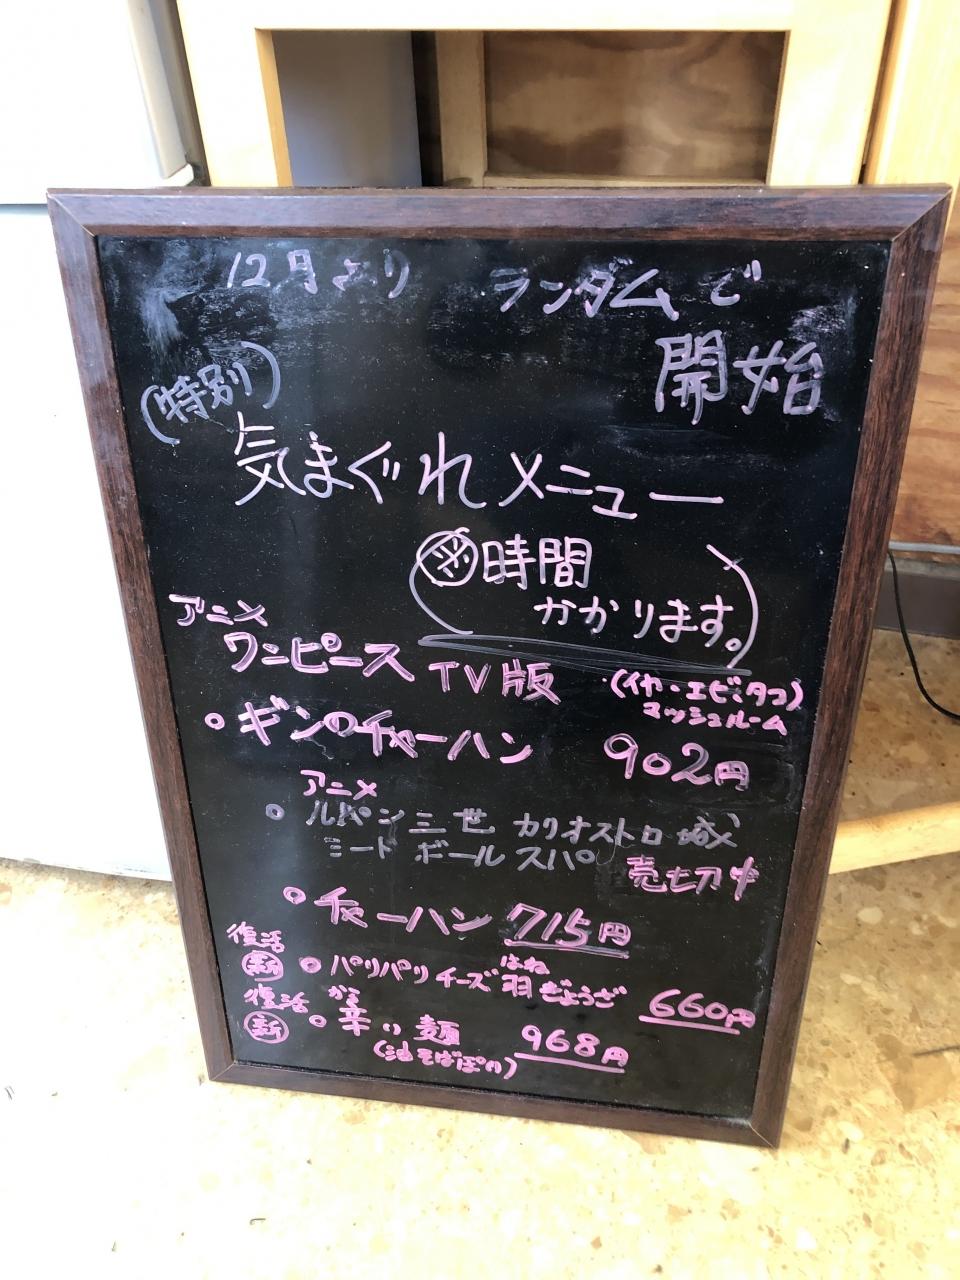 12月より ランダムで
開始
(特別)
気まぐれメニュー
※時間
かかります。
アニメ
ワンピース TV版
(イカ・エビ・タコ)
マッシュルーム
○ギンのチャーハン 902円
アニメ
○ルパン三世 カリオストロ城
ミートボールスパ 売切中
○チャーハン 715円
復活
新 ○パリパリチーズ羽ぎょうざ 660円
はね
復活 から
新 ○辛い麺 968円
(油そばぽい)